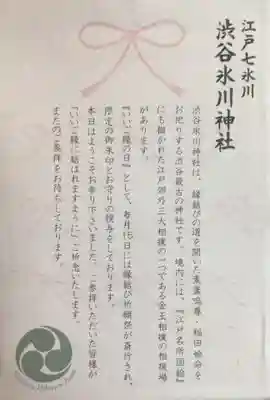 江戸七氷川
渋谷氷川神社
渋谷氷川神社は、縁結びの道を開いた素盞鳴尊・稲田姫命を
お祀りする渋谷最古の神社です。境内には、『江戸名所図絵』
にも描かれた江戸郊外三大相撲の一つである金王相撲の相撲場
があります。
『いいご縁の日』として、毎月15日には縁結び祈願祭が斎行され、
限定の御朱印とお守りの授与をしております。
本日はようこそお参り下さいました。ご参拝いただいた皆様が
「いいご縁に結ばれますように」ご祈念いたします。
またのご参拝をお待ちしております。